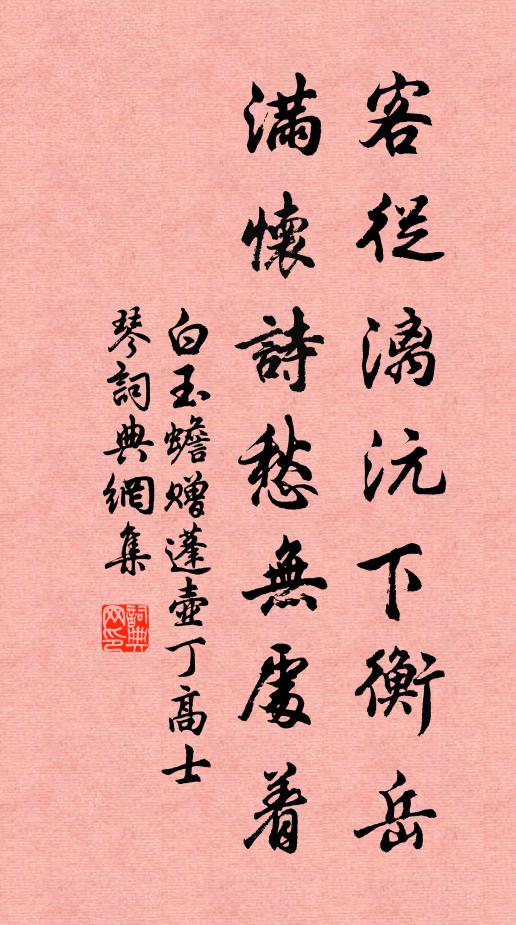 客從漓沅下衡岳
滿懷詩愁無處着
白玉蟾赠蓬壺丁高士
琴詞典網集
詞典網印